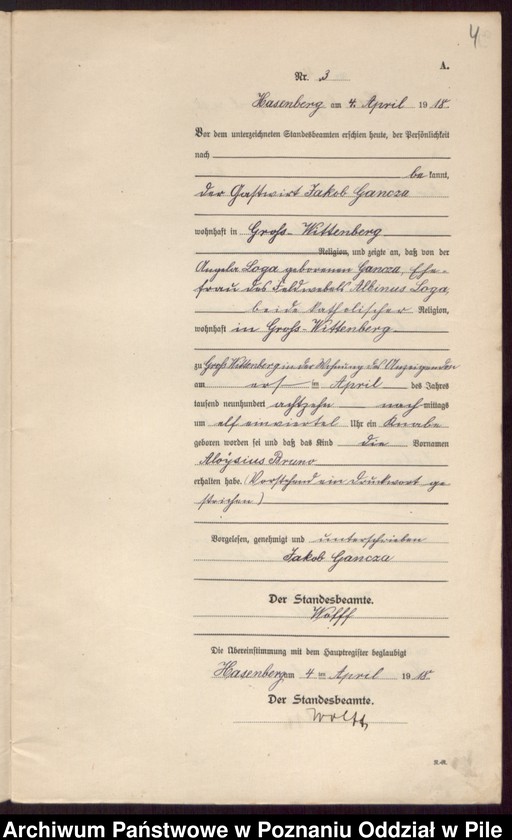 4
A.
Nr. 3
Hasenberg am 4. April 1918.
Vor dem unterzeichneten Standesbeamten erschien heute, der Persönlichkeit
nach
be kannt,
der Gastwirt Jakob Gancza
wohnhaft in Groß-Wittenberg
Religion, und zeigte an, daß von der
Angela Loga geborenen Gancza, Ehe-
frau des Feldwebels Albinus Loga,
beide katholischer Religion,
wohnhaft in Groß-Wittenberg
zu Groß Wittenberg in der Wohnung des Anzeigenden
am ersten April des Jahres
tausend neunhundert achtzehn nach mittags
um elf einviertel Uhr ein Knabe
geboren worden sei und daß das Kind die Vornamen
Aloysius Bruno
erhalten habe. (Vorstehend ein Druckwort ge
strichen)
Vorgelesen, genehmigt und unterschrieben
Jakob Gancza
Der Standesbeamte.
Wolff
Die Übereinstimmung mit dem Hauptregister beglaubigt
Hasenberg am 4 ten April 1918.
Der Standesbeamte.
Wolff
R.-M.
Archiwum Państwowe w Poznaniu Oddział w Pile